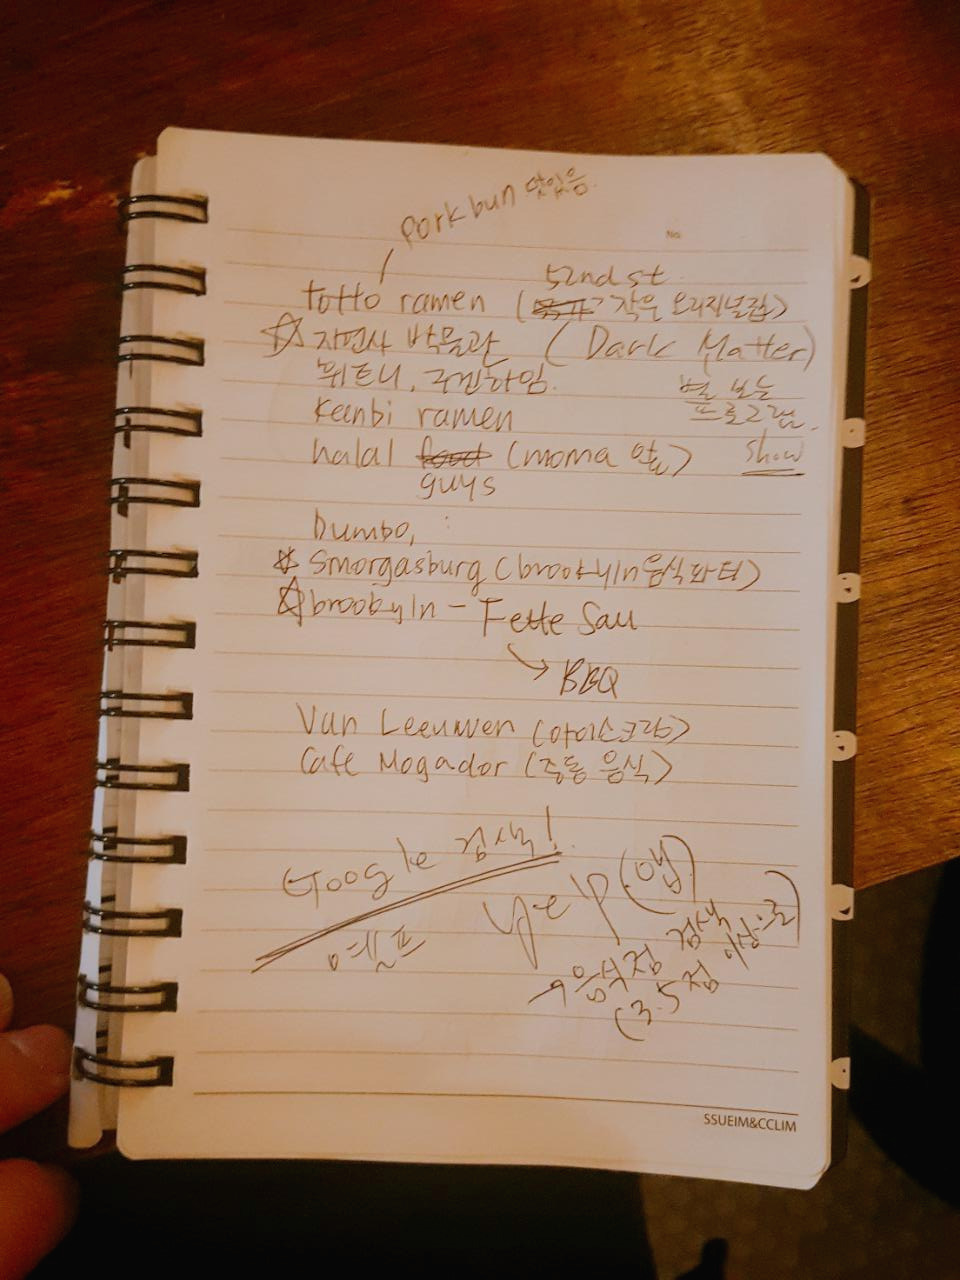 pork bun 맛있음
No.
52nd st.
totto ramen (작은 오리지널점)
☆ 자연사 박물관 (Dark Matter)
휘트니, 구겐하임. 별 보는
프로그램.
Keenbi ramen
halal food (moma 앞) show
guys
Dumbo,
☆ Smorgasburg (brooklyn 음식파티)
☆ brooklyn - Fette Sau
→ BBQ
Van Leeuwen (아이스크림)
Cafe Mogador (중동 음식)
Google 검색!
옐프 yelp (앱)
→ 음식점 검색
(3.5점 이상으로)
SSUEIM&CCLIM